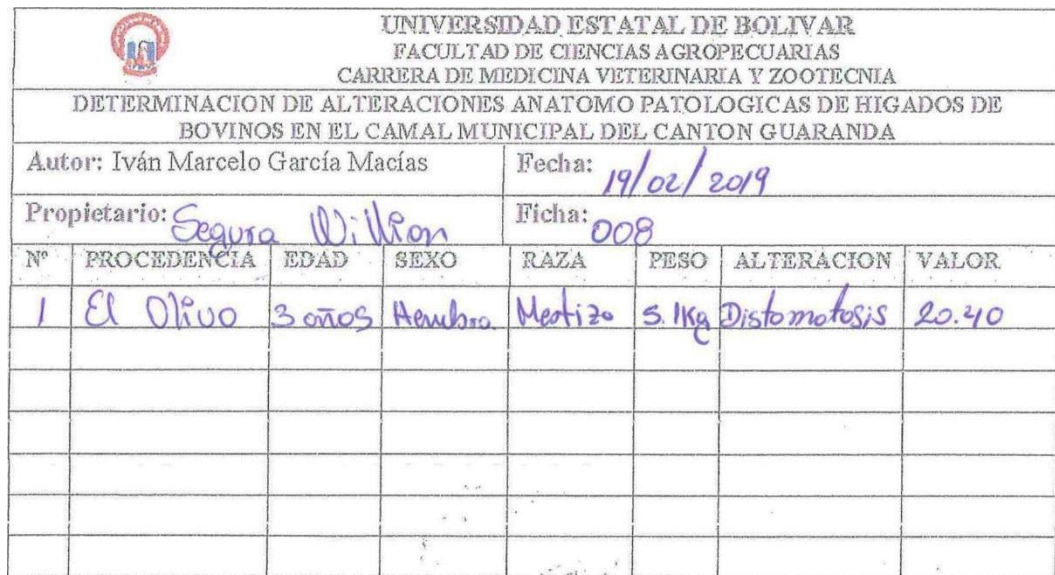 UNIVERSIDAD ESTATAL DE BOLIVAR
FACULTAD DE CIENCIAS AGROPECUARIAS
CARRERA DE MEDICINA VETERINARIA Y ZOOTECNIA
DETERMINACION DE ALTERACIONES ANATOMO PATOLOGICAS DE HIGADOS DE
BOVINOS EN EL CAMAL MUNICIPAL DEL CANTON GUARANDA
Autor: Iván Marcelo García Macías Fecha: 19/02/2019
Propietario: Segura Willion Ficha: 008
Nº PROCEDENCIA EDAD SEXO RAZA PESO ALTERACION VALOR
1 El Olivo 3 años Hembra Mestizo 5.1Kg Distomatosis 20.40